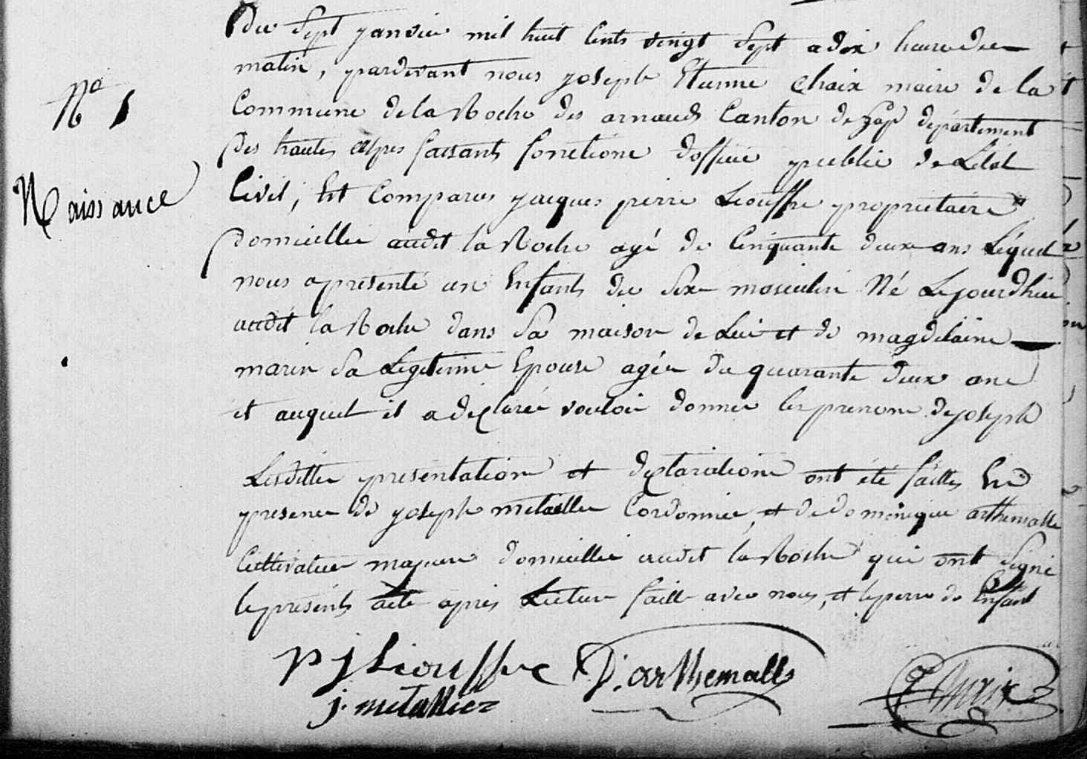 Du Sept janvier mil huit Cents vingt Sept a dix heure du
matin, pardevant nous joseph Etienne Chaix maire de la
N° 1
Commune de la Roche des arnauds Canton de Gap département
Des hautes alpes faisants fonctions d'officier public de L'état
Naissance
Civil, Est Comparus jacques pierre Liouffre proprietaire
Domicillié audit la Roche agé de Cinquante deux ans Lequel
nous a presenté un Enfants du Sexe masculin Né Lejourdhui
audit la Roche dans Sa maison de Lui et de magdelaine
marin Sa Legitime Epouse agée de quarante deux ans
et auquel il a declaré vouloir donner les prenoms de joseph
Lesdittes presentations et declarations ont été faittes En
presence de joseph metallier Cordonnier, et de dominique arthemalle
Cultivateur majeurs domicilliés audit la Roche qui ont Signé
le présents acte après Lecture faitte avec nous, et le perre de L'Enfant
P j Liouffre D. arthemalle
j. metallier
Chaix